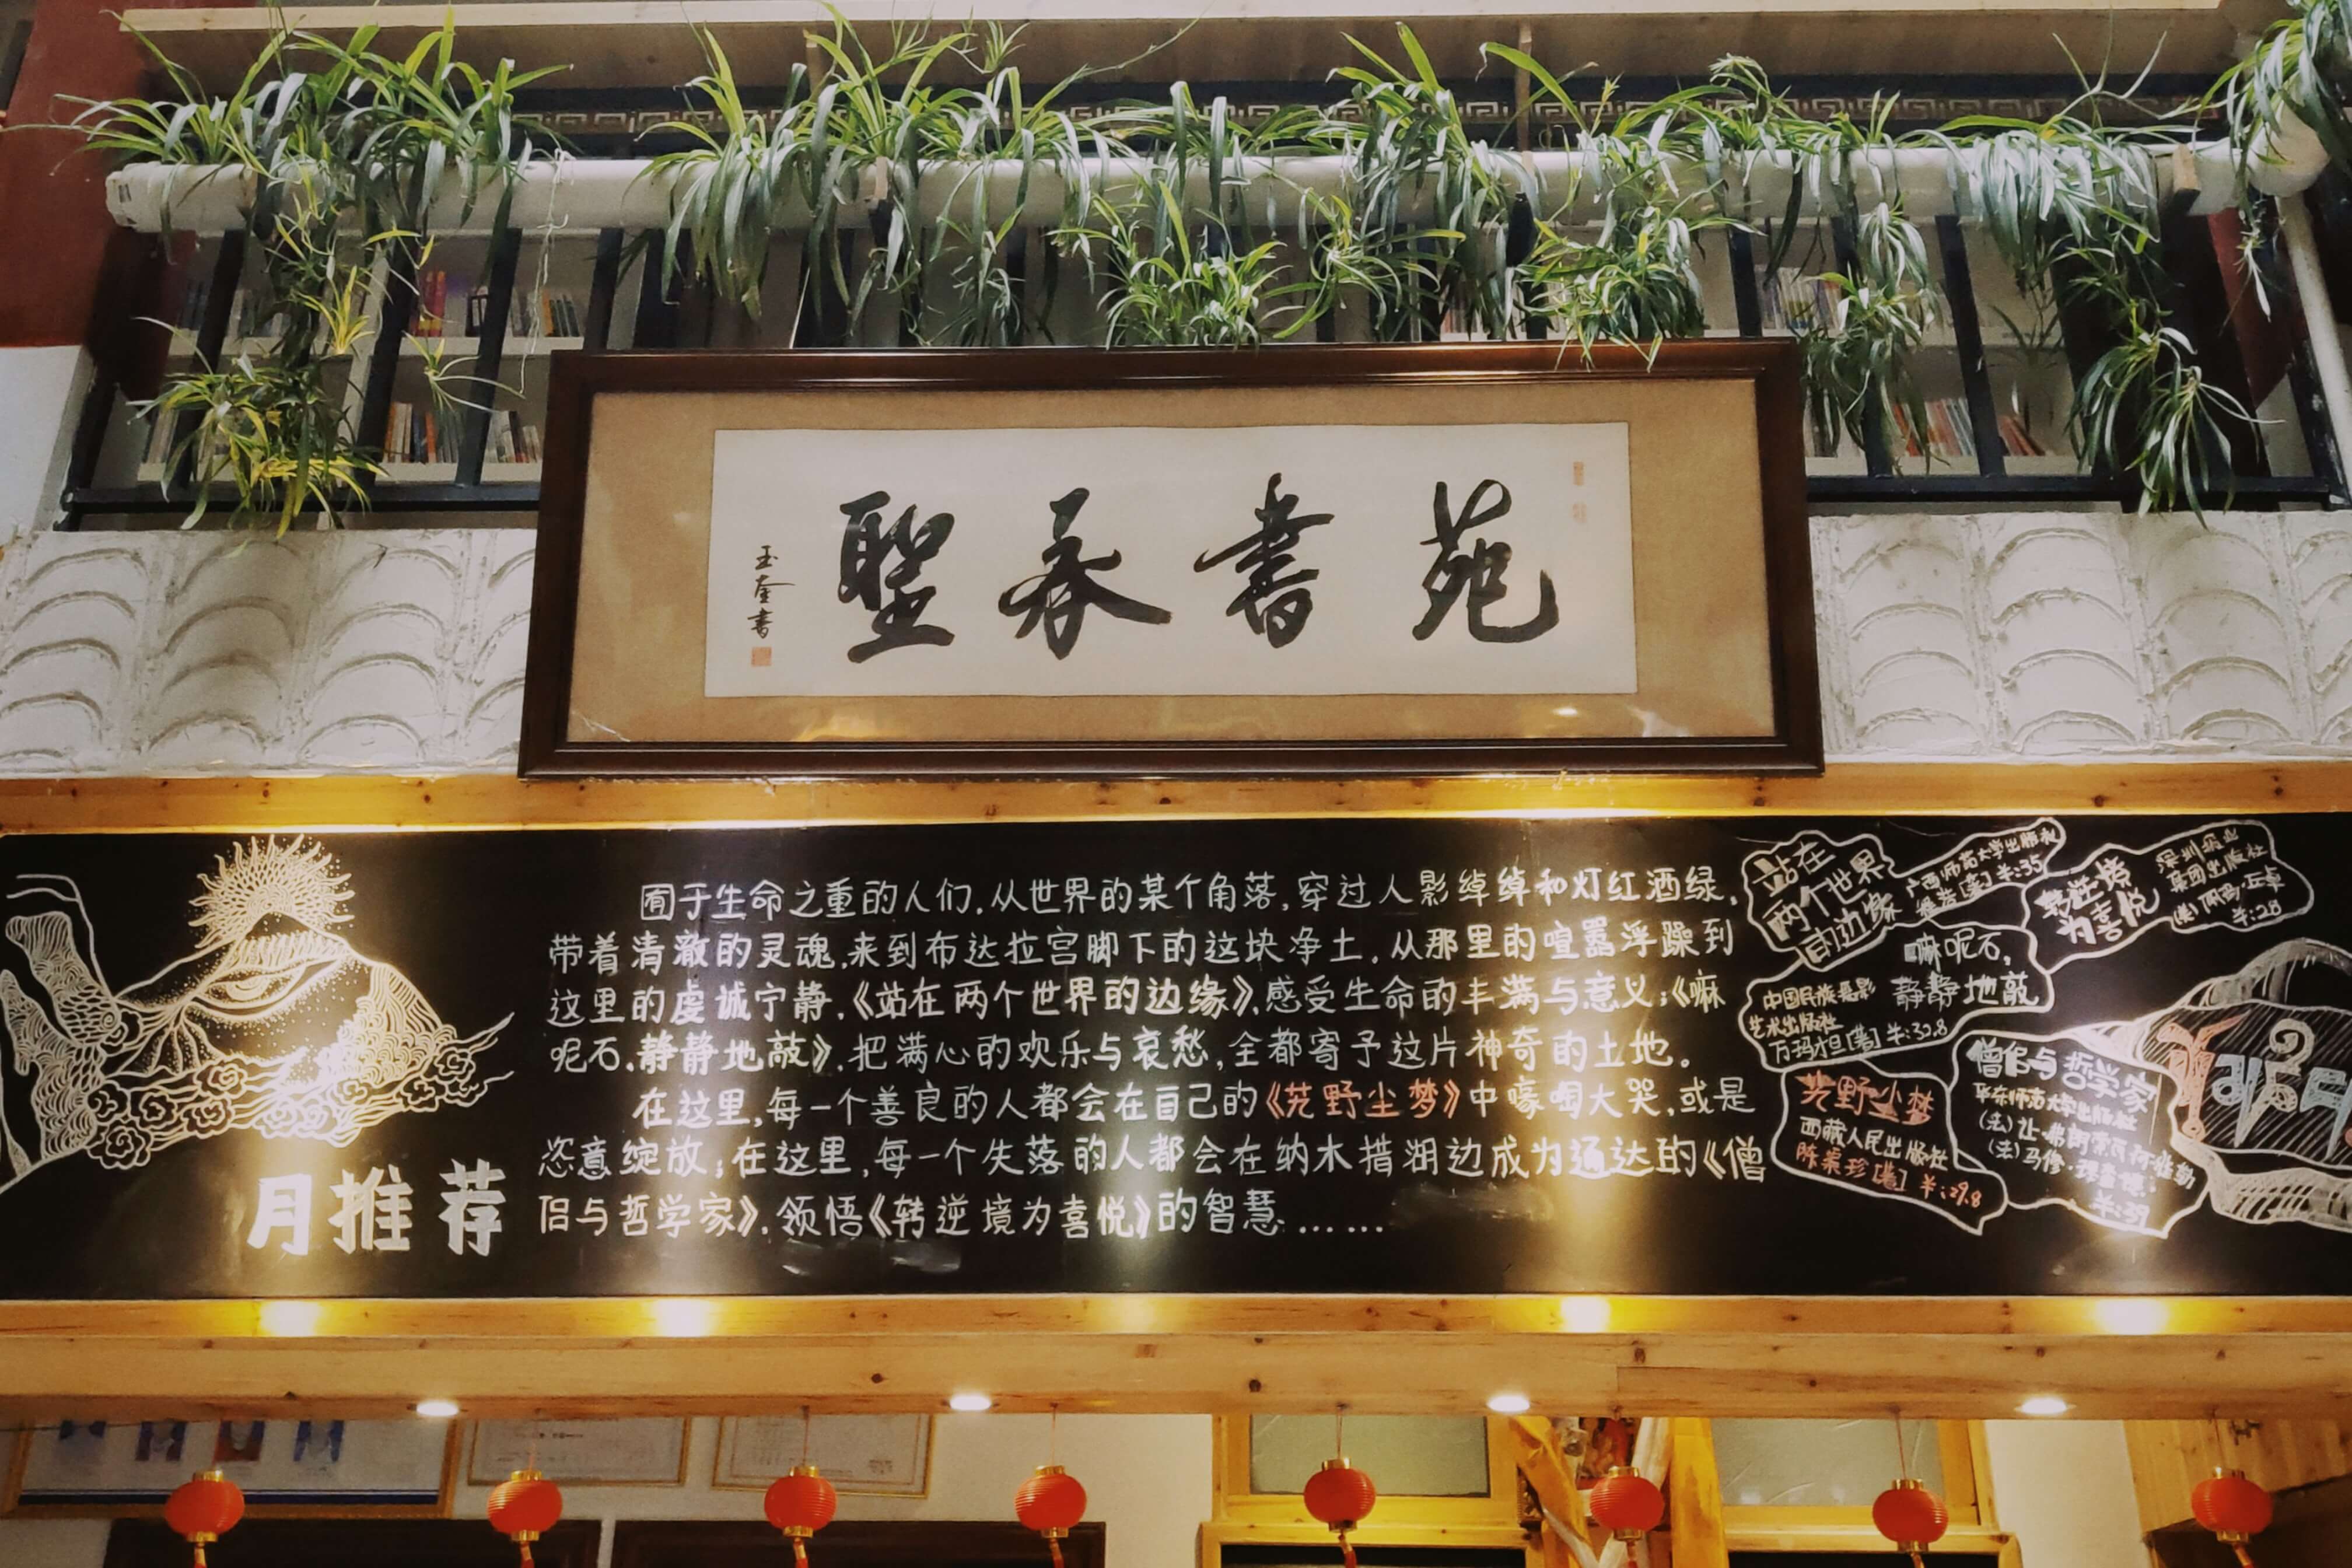 聖承書苑
玉奎書
囿于生命之重的人们,从世界的某个角落,穿过人影绰绰和灯红酒绿,
带着清澈的灵魂,来到布达拉宫脚下的这块净土,从那里的喧嚣浮躁到
这里的虔诚宁静,《站在两个世界的边缘》,感受生命的丰满与意义;《嘛
呢石,静静地敲》,把满心的欢乐与哀愁,全都寄予这片神奇的土地。
在这里,每一个善良的人都会在自己的《艽野尘梦》中嚎啕大哭,或是
恣意绽放;在这里,每一个失落的人都会在纳木措湖边成为通达的《僧
侣与哲学家》,领悟《转逆境为喜悦》的智慧……
月推荐
站在
两个世界
的边缘
广西师范大学出版社
程浩[著] ¥:35
转逆境
为喜悦
深圳报业
集团出版社
¥:28
嘛呢石,
静静地敲
中国民族摄影
艺术出版社
万玛才旦[著] ¥:32.8
艽野尘梦
西藏人民出版社
陈渠珍[著] ¥:29.8
僧侣与哲学家
华东师范大学出版社
¥:39